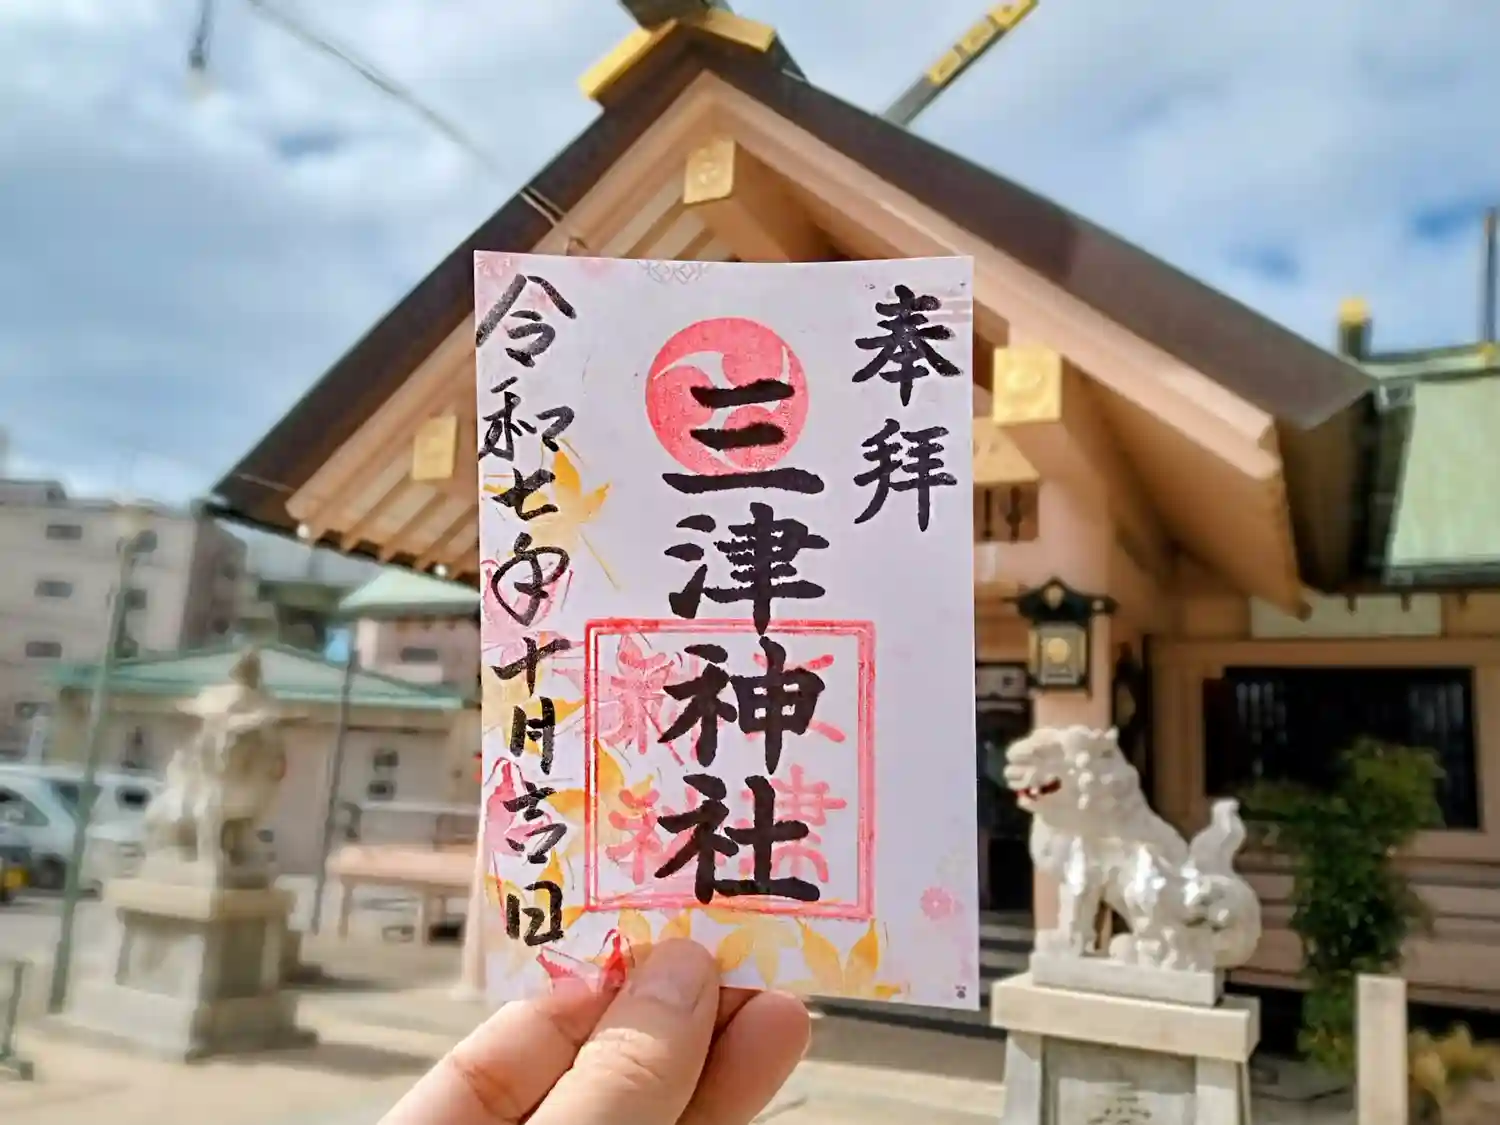 奉拝
三津神社
令和七年十月吉日
三津
神社